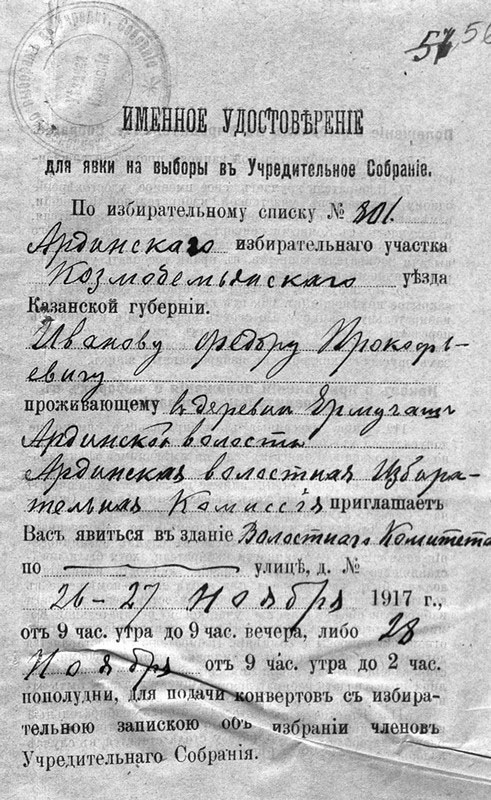 56
ИМЕННОЕ УДОСТОВѢРЕНІЕ
для явки на выборы въ Учредительное Собраніе.
По избирательному списку № 801.
Ардинскаго избирательнаго участка
Козмодемьянскаго уѣзда
Казанской губерніи.
Иванову Федору Прокофь-
евичу
проживающему въ деревни Ермучашъ
Ардинской волости
Ардинская волостная Избира-
тельная Комиссія приглашаетъ
Васъ явиться въ зданіе Волостного Комитета
по улицѣ, д. №
26-27 Ноября 1917 г.,
отъ 9 час. утра до 9 час. вечера, либо 28
Ноября отъ 9 час. утра до 2 час.
пополудни, для подачи конвертовъ съ избира-
тельною запискою объ избраніи членовъ
Учредительнаго Собранія.